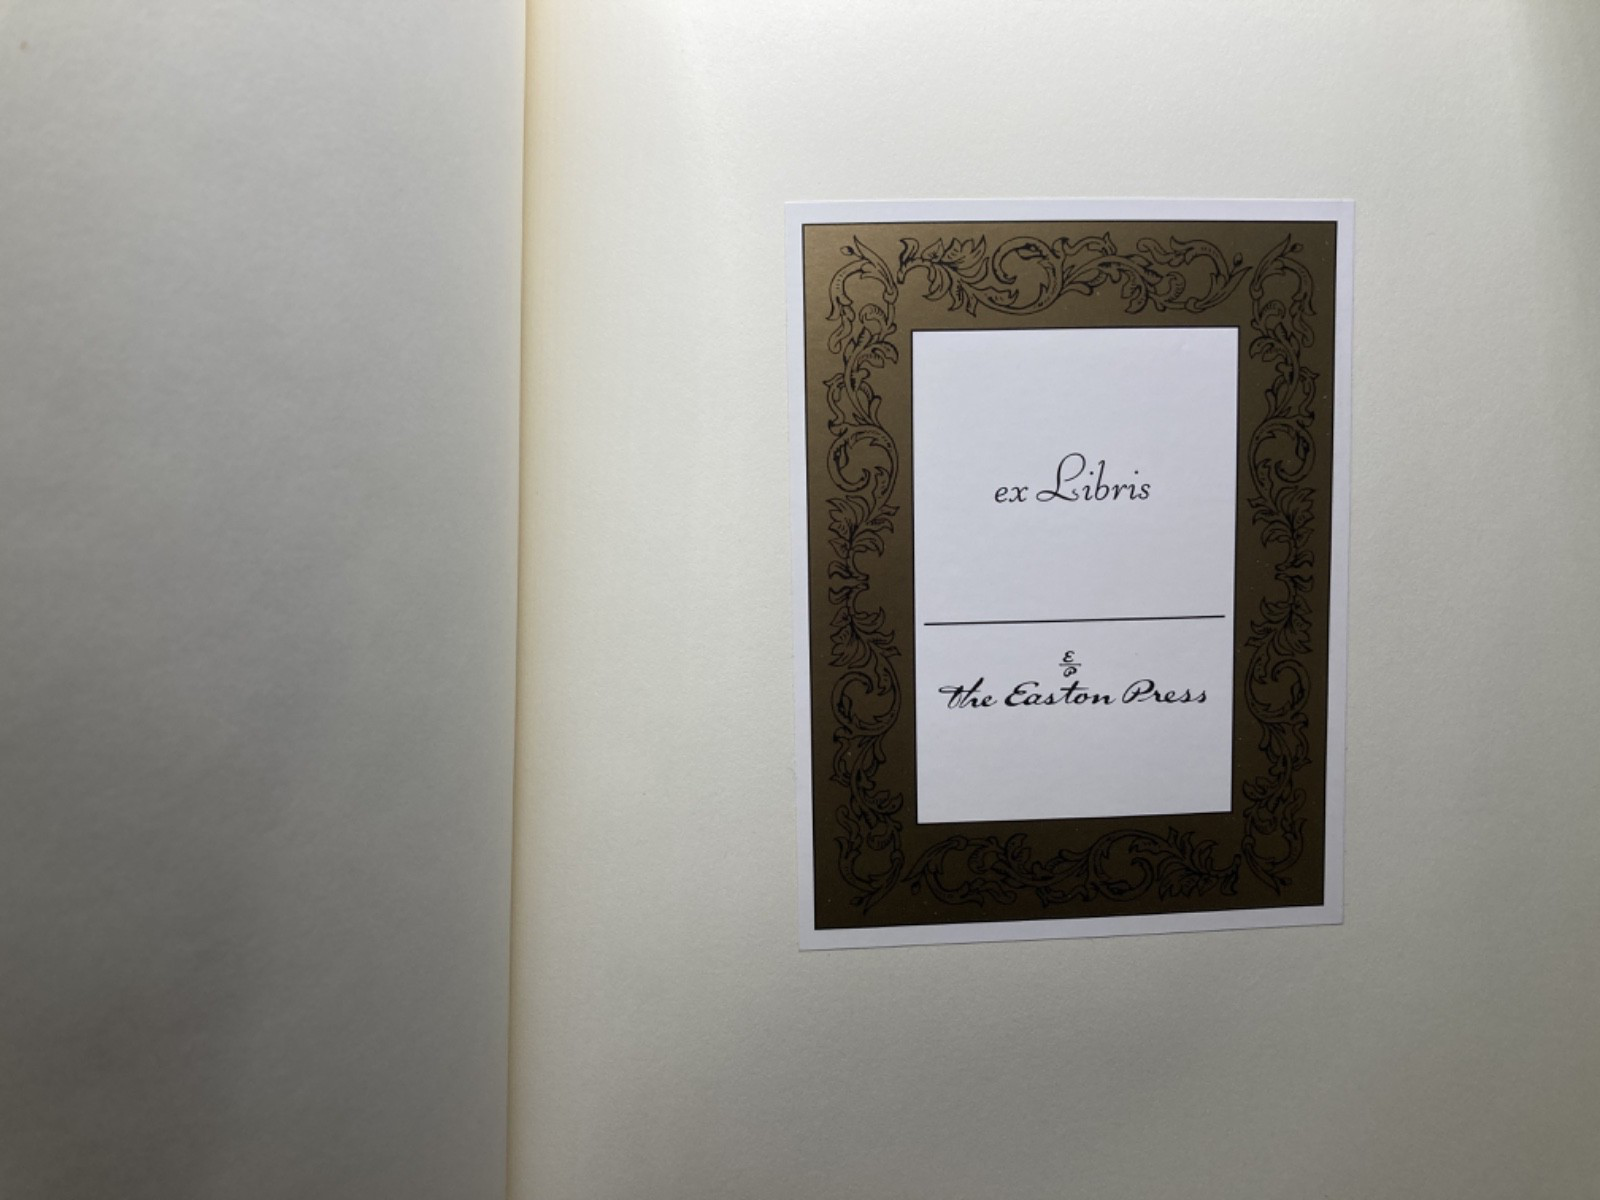 ex Libris
E
P
the Easton Press